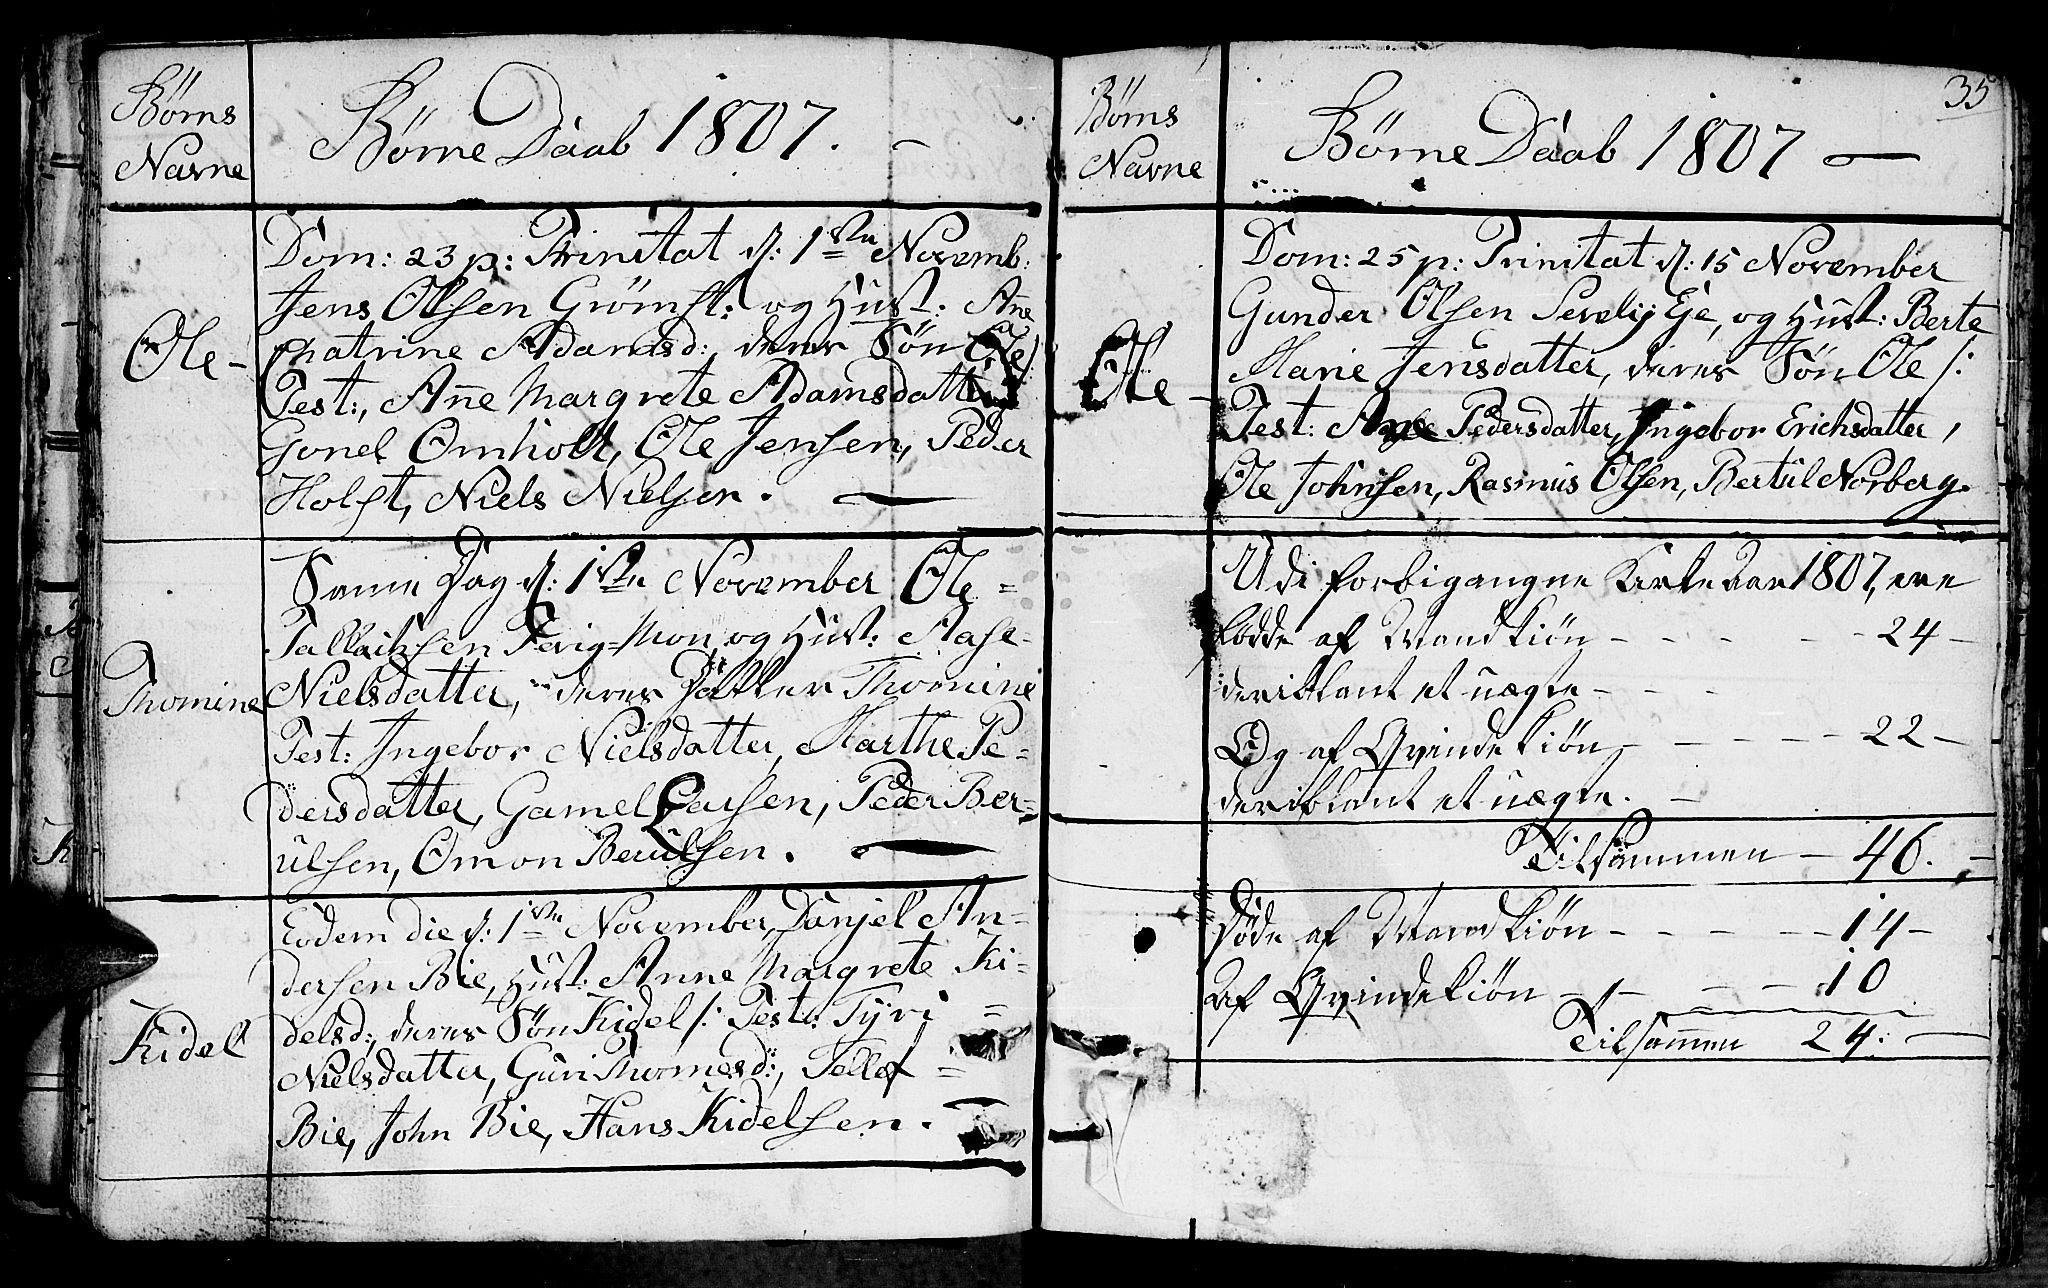 Børns
Navne
Børne Daab 1807. -
Ole -
Dom: 23 p: Trinitat d: 1ste Novemb:
Jens Olsen Grømst: og Hust: Ane
Chatrine Adamsd: deres Søn Ole
Test:, Añe Margrete Adamsdatter
Gonel Omholt, Ole Jensen, Peder
Holst, Niels Nielsen.
Thomine
Samme Dag d: 1ste November Ole =
Tallachsen og Hust: Aase
Nielsdatter, deres Datter Thomine
Test: Ingebor Nielsdatter, Marthe Pe-
dersdatter, Gamel Larsen, Peder Ber=
ulsen, Omon Berulsen.
Kidel
Eodem die d: 1ste November, Danjel An-
dersen Bie, Hust: Anne Margrete Ki-
delsd:, deres Søn Kidel /: Test: Tyri =
Nielsdatter, Guri Thomesd:, Tellef =
Bie, John Bie, Hans Kidelsen.
35
Børns
Navne
Børne Daab 1807 -
Ole -
Dom: 25 p: Trinitat d: 15 November
Gunder Olsen Sevelij Eje, og Hust: Berte
Marie Jensdatter, deres Søn Ole /:
Test: Pedersdatter, Ingebor Erichsdatter,
Ole Johnsen, Rasmus Olsen, Bertul Norberg.
Udi forbigangne Kirke Aar 1807, ere
fødde af Mandkiøn - - - - - 24 -
deriblant et uægte - - -
Og af Qvindekiøn, - - - - - 22 -
deriblant et uægte. -
Tilsammen - 46. -
Døde af Mandkiøn - - - - - 14 -
Af Qvindekiøn - - - - 10
Tilsam̃en 24: -